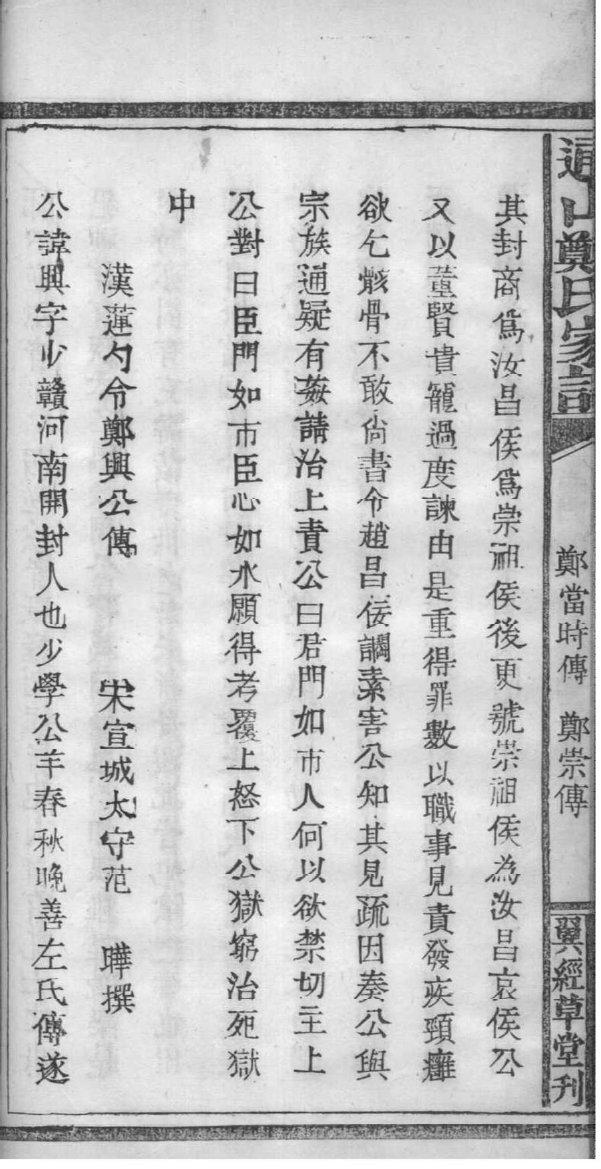 通山鄭氏家譜
鄭當時傳 鄭崇傳
翼經草堂刊
其封商爲汝昌侯爲崇祖侯後更號崇祖侯為汝昌哀侯公
又以董賢貴寵過度諫由是重得罪數以職事見責發疾頸癰
欲乞骸骨不敢尙書令趙昌佞讇素害公知其見疏因奏公與
宗族通疑有姦請治上責公曰君門如市人何以欲禁切主上
公對曰臣門如市臣心如水願得考覆上怒下公獄窮治死獄
中
漢蓮勺令鄭興公傳 宋宣城太守范 曄撰
公諱興字少贛河南開封人也少學公羊春秋晚善左氏傳遂